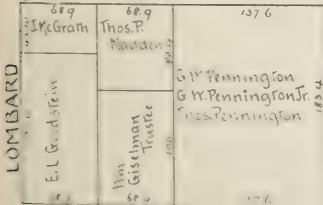 LOMBARD
68.9
J. McGrath
E. L. Goldstein
68.9
Thos. P.
Madden
Wm
Giselman
Trustee
68.9
137.6
G W Pennington
G. W. Pennington Jr.
Thos. Pennington
137.6